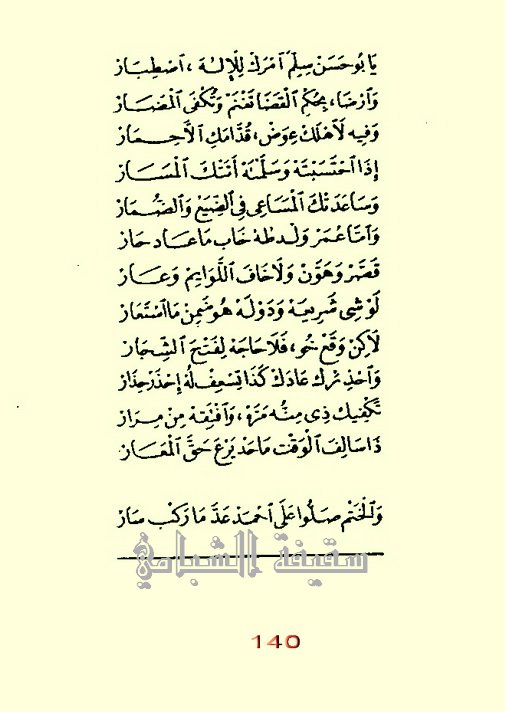 يَا بُو حَسَنْ سِلِّمَ آمْرَكْ لِلْإِلٰهْ ، اَصْطِبَارْ
وَارْضَا ، بِحُكِمِ الْقَضَا تَغْنَمْ وَتُكْفَى الْمَضَارْ
وَفِيهِ لَاهْلَكْ عِوَضْ ، قُدَّامَكِ الْأَحِمَارْ
إِذَا احْتَسَبْتَهْ وَسَلَّمْتَهْ أَتَتْكَ الْمَسَارْ
وَسَاعَدَتْكَ الْمَسَاعِى فِي الضِّيَعْ وَالضِّمَارْ
وَامَّا عُمَرْ وَلْد طٰهْ خَابْ مَا عَادْ حَازْ
قَصَّرْ وَهَوَّنْ وَلَا خَافَ اللَّوَايِمْ وَعَارْ
لَوْ شِى شَرِيعَهْ وَدَوْلَهْ هُو ضَمِنْ مَا اسْتَعَارْ
لَاكِنْ وَقَعْ خُو ، فَلَا حَاجَهْ لِفَتْحَ الشِّجَارْ
وَاحْذِ تْرِكْ عَادَكْ كَذَا تِسْعِفْ لُهْ إِحْذَرْ حِذَارْ
تَكْفِيكْ ذِى مِنُّهْ مَرَّهْ ، وَافْتِهْ مِنْ مِرَارْ
ذَا سَالِفَ الْوَقْتْ مَا حَدْ يَرْعَ حَقَّ الْمَعَارْ
وَالْخَتْمْ صَلُّوا عَلَى احْمَدْ عَدَّ مَا رَكْبْ سَارْ
سقيفة الشبامي
140